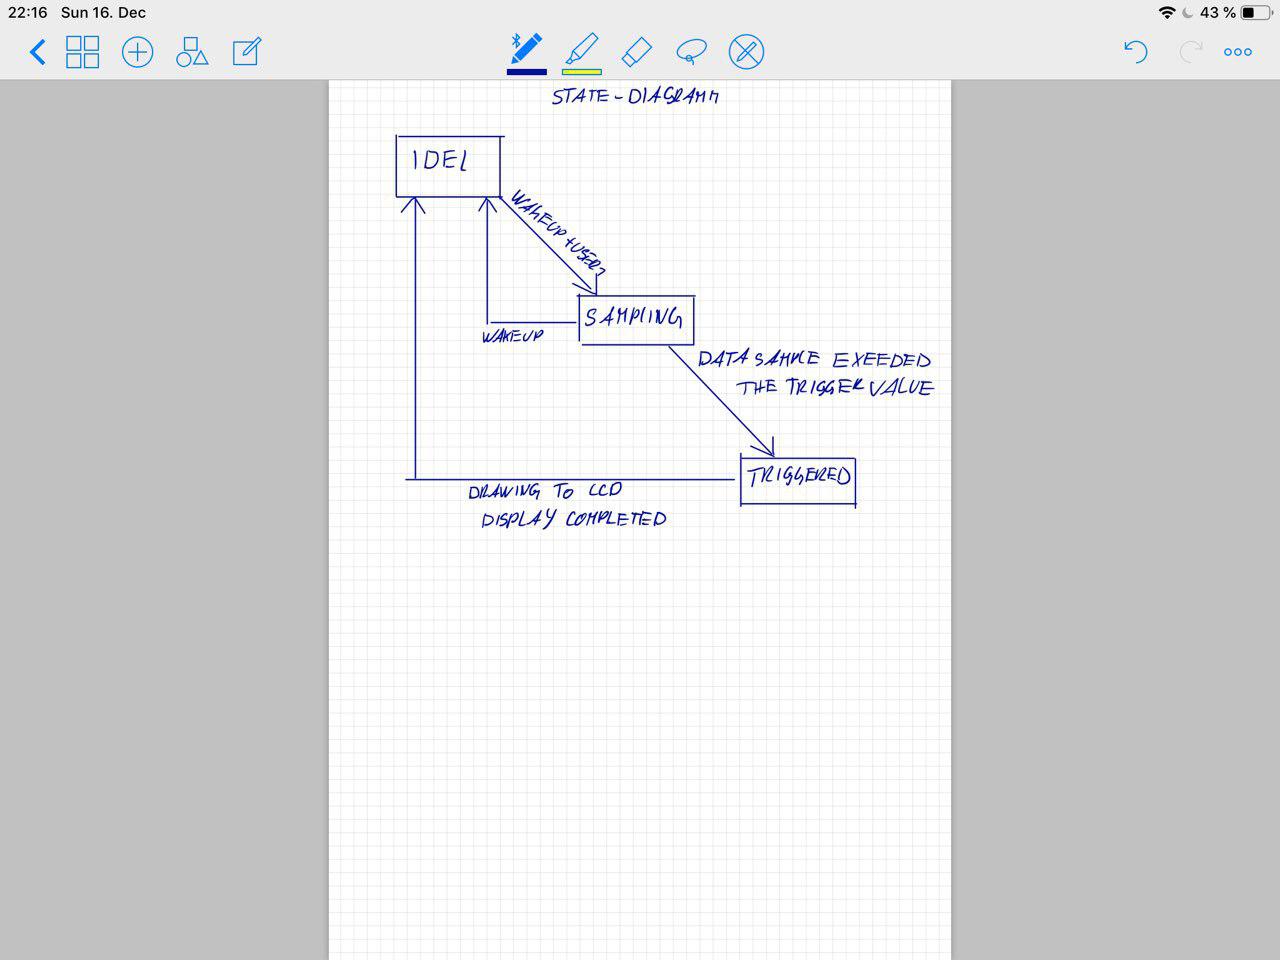 22:16 Sun 16. Dec 43 %
STATE-DIAGRAMM
IDEL
WAKEUP + USER?
SAMPLING
WAKEUP
DATA SAMPLE EXEEDED
THE TRIGGER VALUE
TRIGGERED
DRAWING TO LCD
DISPLAY COMPLETED